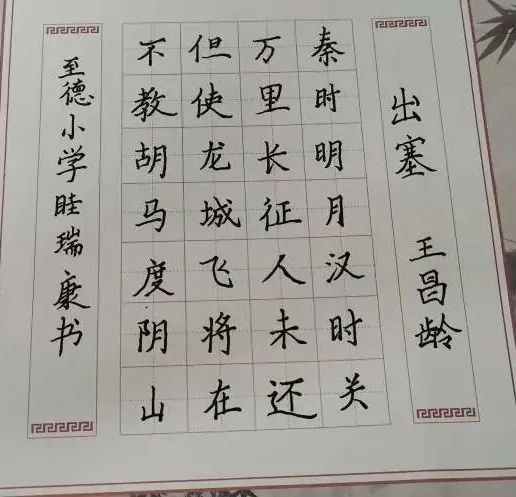 出塞 王昌龄
秦时明月汉时关
万里长征人未还
但使龙城飞将在
不教胡马度阴山
至德小学眭瑞康书